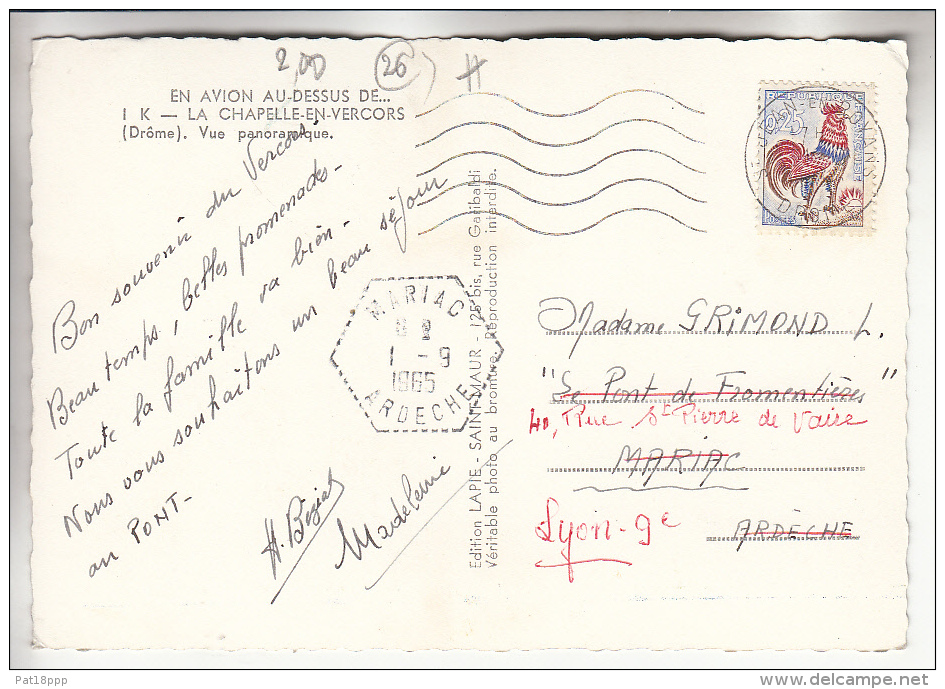 2,00 26
EN AVION AU-DESSUS DE...
I K — LA CHAPELLE-EN-VERCORS
(Drôme). Vue panoramique.
Bon souvenir du Vercors.
Beau temps, belles promenades-
Toute la famille va bien-
Nous vous souhaitons un beau séjour
au PONT-
Madeleine
MARIAC
1-9
1965
ARDECHE
Edition LAPIE - SAINT-MAUR - 125 bis, rue Garibaldi
Véritable photo au bromure. Reproduction interdite.
ST-JEAN-EN-ROYANS
DROME
0,25
Madame GRIMOND L.
"Le Pont de Fromentières"
40, Rue St Pierre de Vaise
MARIAC
Lyon-9e
ARDÈCHE
Pat18ppp